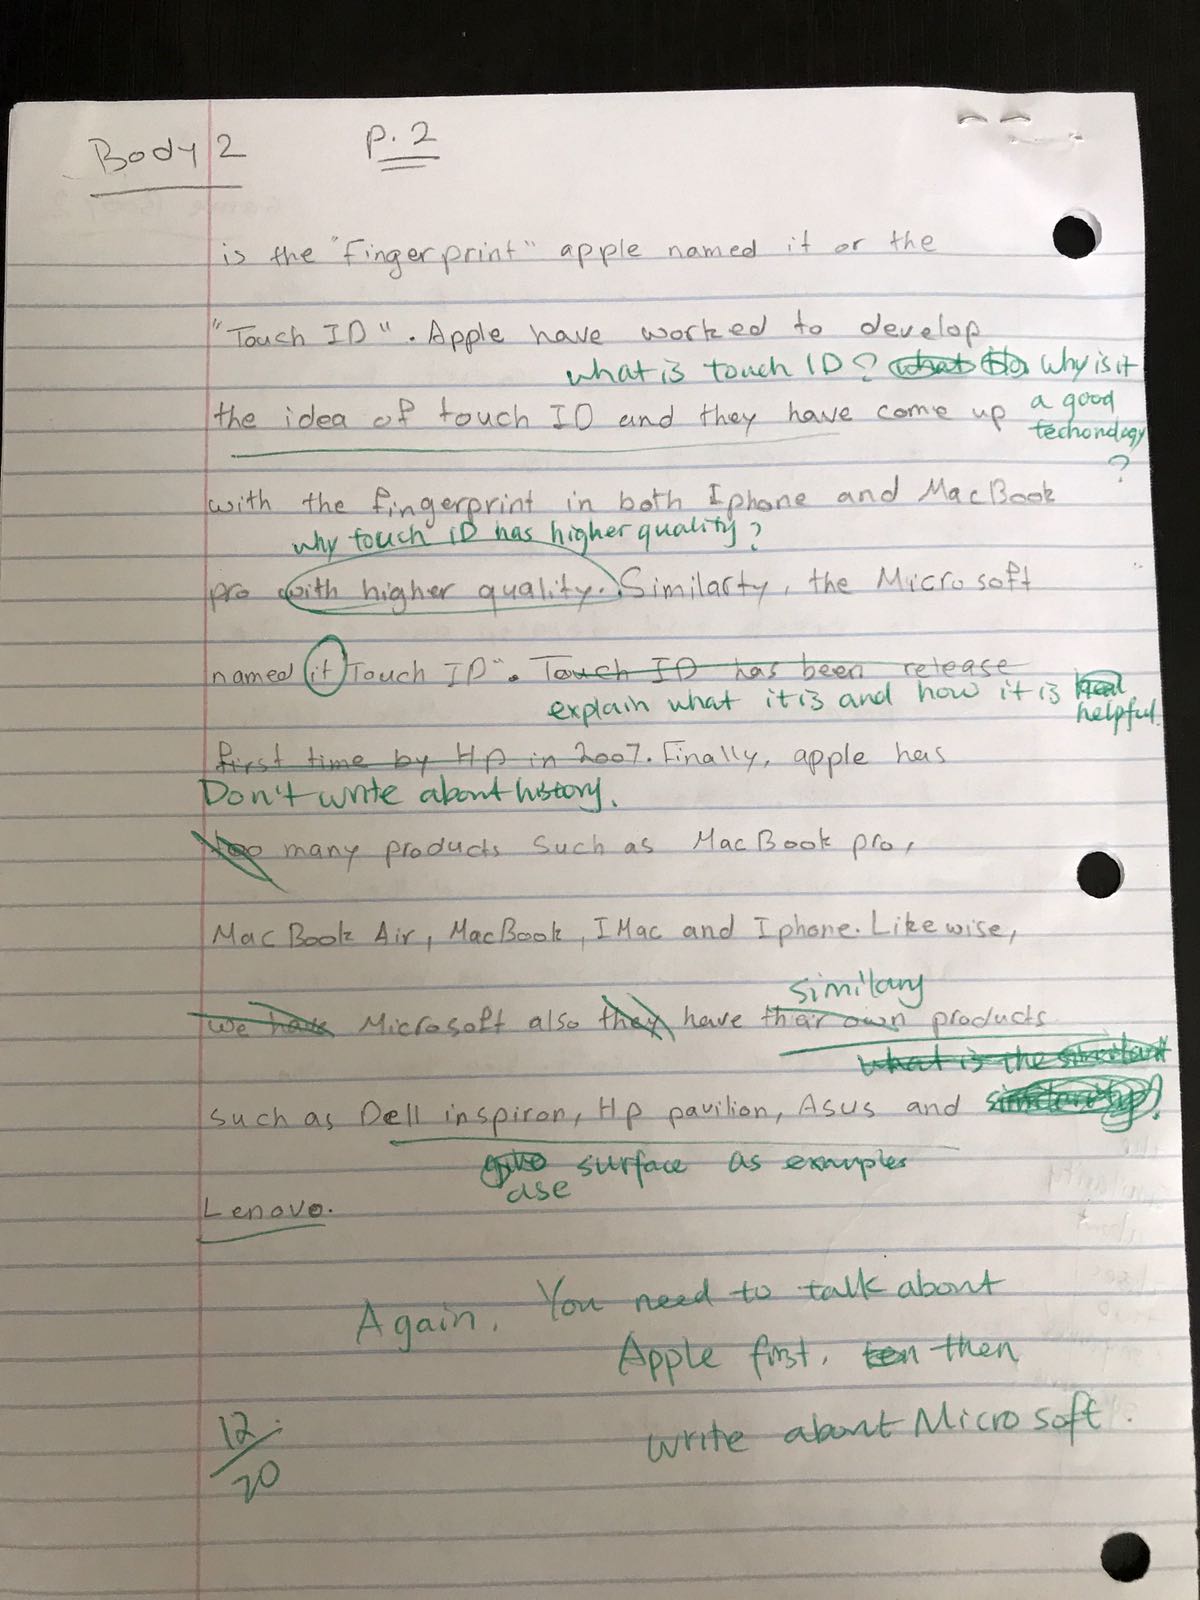 Body 2 P. 2
is the "Fingerprint" apple named it or the
"Touch ID". Apple have worked to develop
what is touch ID? what why is it
the idea of touch ID and they have come up a good
techondogy
?
with the fingerprint in both Iphone and MacBook
why touch ID has higher quality?
pro with higher quality. Similarty, the Microsoft
named it "Touch ID". Touch ID has been release
explain what it is and how it is
helpful.
first time by Hp in 2007. Finally, apple has
Don't write about history.
too many products such as MacBook pro,
MacBook Air, MacBook, IMac and Iphone. Likewise,
similary
we have Microsoft also they have thair own products
what is the
such as Dell inspiron, Hp pavilion, Asus and
surface as examples
use
Lenovo.
Again. You need to talk about
Apple first, ten then
write about Microsoft.
12/20